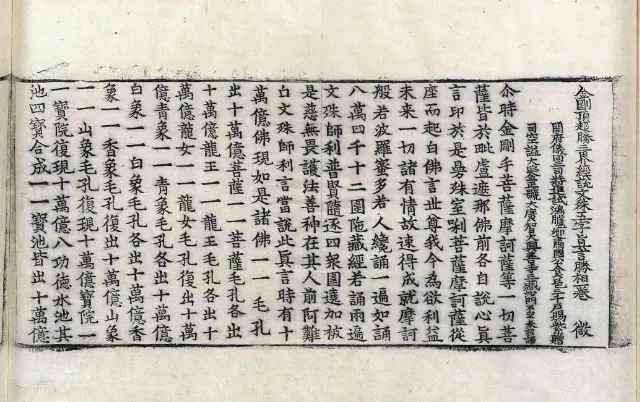 金剛頂超勝三界經說文殊五字真言勝相一卷 微
開府儀同三司特進試鴻臚卿肅國公食邑三千戶賜紫贈
司空諡大鑒正號大廣智大興善寺三藏沙門不空奉詔譯
尒時金剛手菩薩摩訶薩等一切菩
薩皆於毗盧遮那佛前各自說心真
言印於是曼殊室唎菩薩摩訶薩從
座而起白佛言世尊我今為欲利益
未來一切諸有情故速得成就摩訶
般若波羅蜜多若人纔誦一遍如誦
八萬四千十二圍陁藏經若誦兩遍
文殊師利普賢隨逐四衆圍遶加被
是慈無畏護法善神在其人前阿難
白文殊師利言當說此真言時有十
萬億佛現如是諸佛一一毛孔
出十萬億菩薩一一菩薩毛孔各出
十萬億龍王一一龍王毛孔各出十
萬億龍女一一龍女毛孔復出十萬
億青象一一青象毛孔各出十萬億
白象一一白象毛孔各出十萬億香
象一一香象毛孔復出十萬億山象
一一山象毛孔復現十萬億寶院一
一寶院復現十萬億八功德水池其
池四寶合成一一寶池皆出十萬億